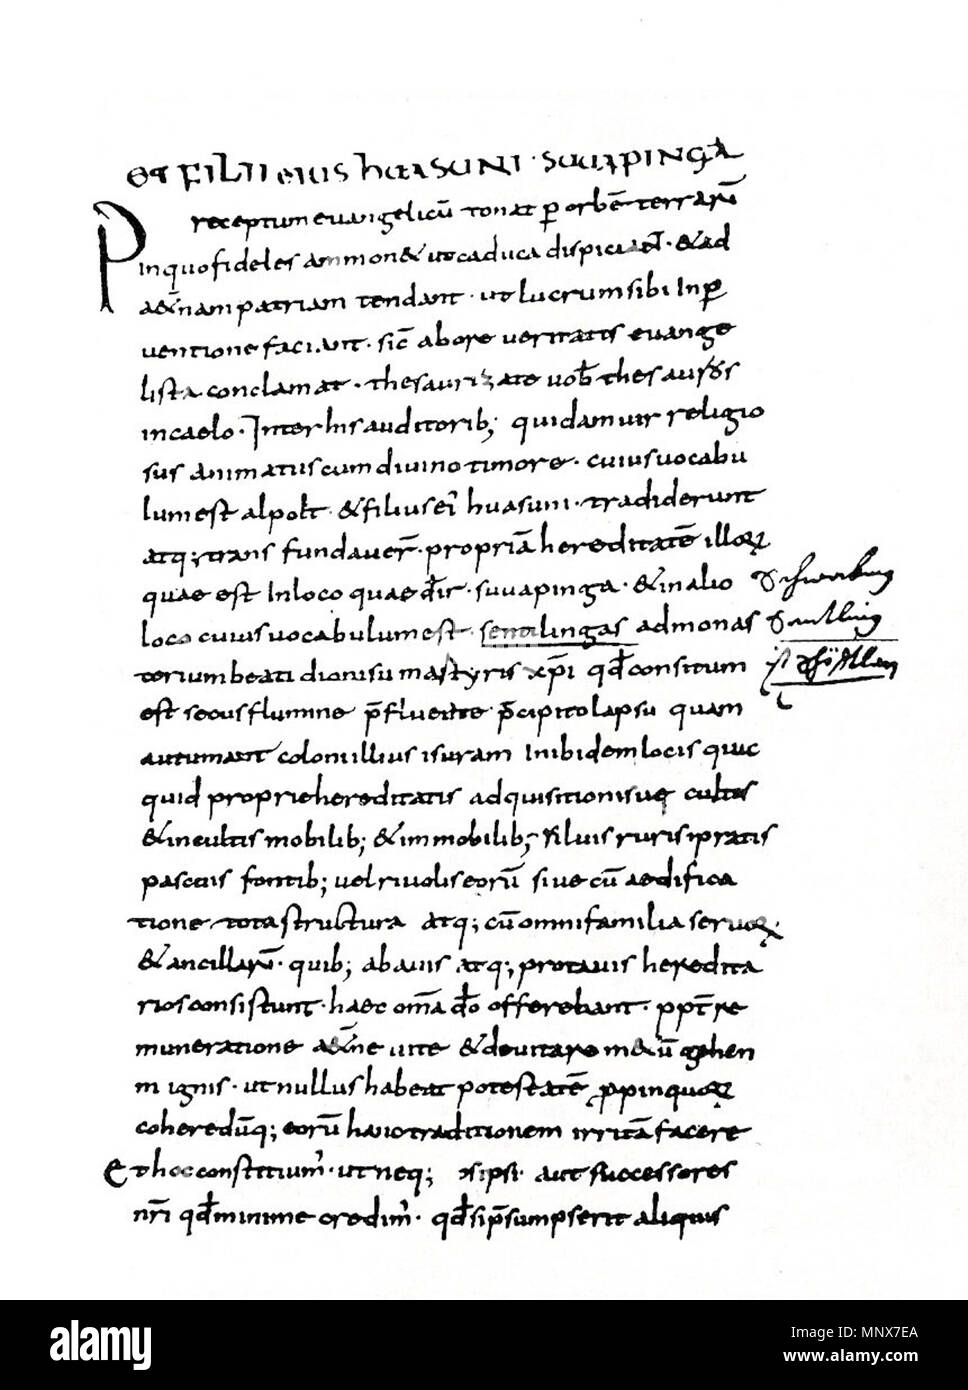 et FILII eius huasuNI · suuapiNGa
Preceptum evangelicū tonat p̄ orbē terrarū
in quo fideles ammon& ut caduca dispiciant · & ad
aet̄nam patriam tendant · ut lucrum sibi In p̄
ventione faciant · sic̄ ab ore veritatis evange
lista conclamat · thesaurizate vob̄ thesauros
in caelo · Inter his auditorib; quidam vir religio
sus animatus cum divino timore · cuius vocabu
lum est alpolt · & filius ei huasuni · tradiderunt
atq; trans fundaver̄ · propriā hereditatē illoꝝ
quae est In loco quae dr̄ · suuapinga · & in alio
loco cuius vocabulum est · sentilingas ad monas
terium beati dionisii martyris xp̄i qđ consitum
est secus flumine p̄fluente p̄cipiti lapsu quam
autumant coloni illius isuram In ibidem locis quic
quid proprie hereditatis adquisitionisve cultis
& incultis mobilib; & immobilib; silvis ruris pratis
pascuis fontib; vel rivolis eorū sive cū aedifica
tione tota structura atq; cū omni familia servoꝝ ·
& ancillarū · quib; abavis atq; protavis heredita
rios consistunt · haec om̄a dō offerebant · ppt̄ re
muneratione aet̄ne vite & devitare metū gehen
ignis · ut nullus habeat potestatē ꝓpinquoꝝ
coheredūq; eorū hanc traditionem irritā facere
Et hoc constitium̄ · ut neq; ipsi · aut successores
nr̄i qđ minime credim̄ · qđ si p̄sumpserit aliquis
Schwabing
Sentling
alamy
Image ID: MNX7EA
www.alamy.com